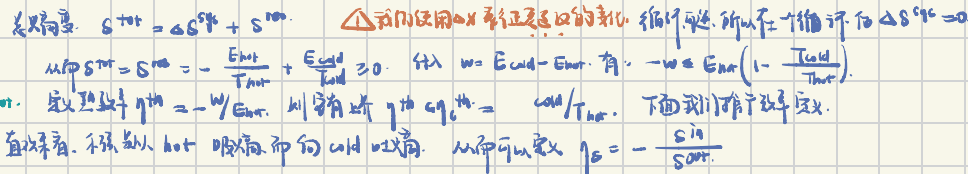 总熵变. S^tot = ΔS^sys + S^res. ⚠我们使用ΔX表征态的变化. 循环可逆. 所以在一个循环后 ΔS^sys = 0
从而 S^tot = S^res = - E_hot/T_hot + E_cold/T_cold ≥ 0. 代入 W = E_cold - E_hot. 有: -W ≤ E_hot(1 - T_cold/T_hot).
定义热效率 η^th = -W/E_hot. 则 有上界 η^th ≤ η_c^th = cold/T_hot. 下面我们推广效率定义.
直观来看. 从 hot 吸熵 而向 cold 吐熵. 从而可以定义 η_s = - S^in/S^out.